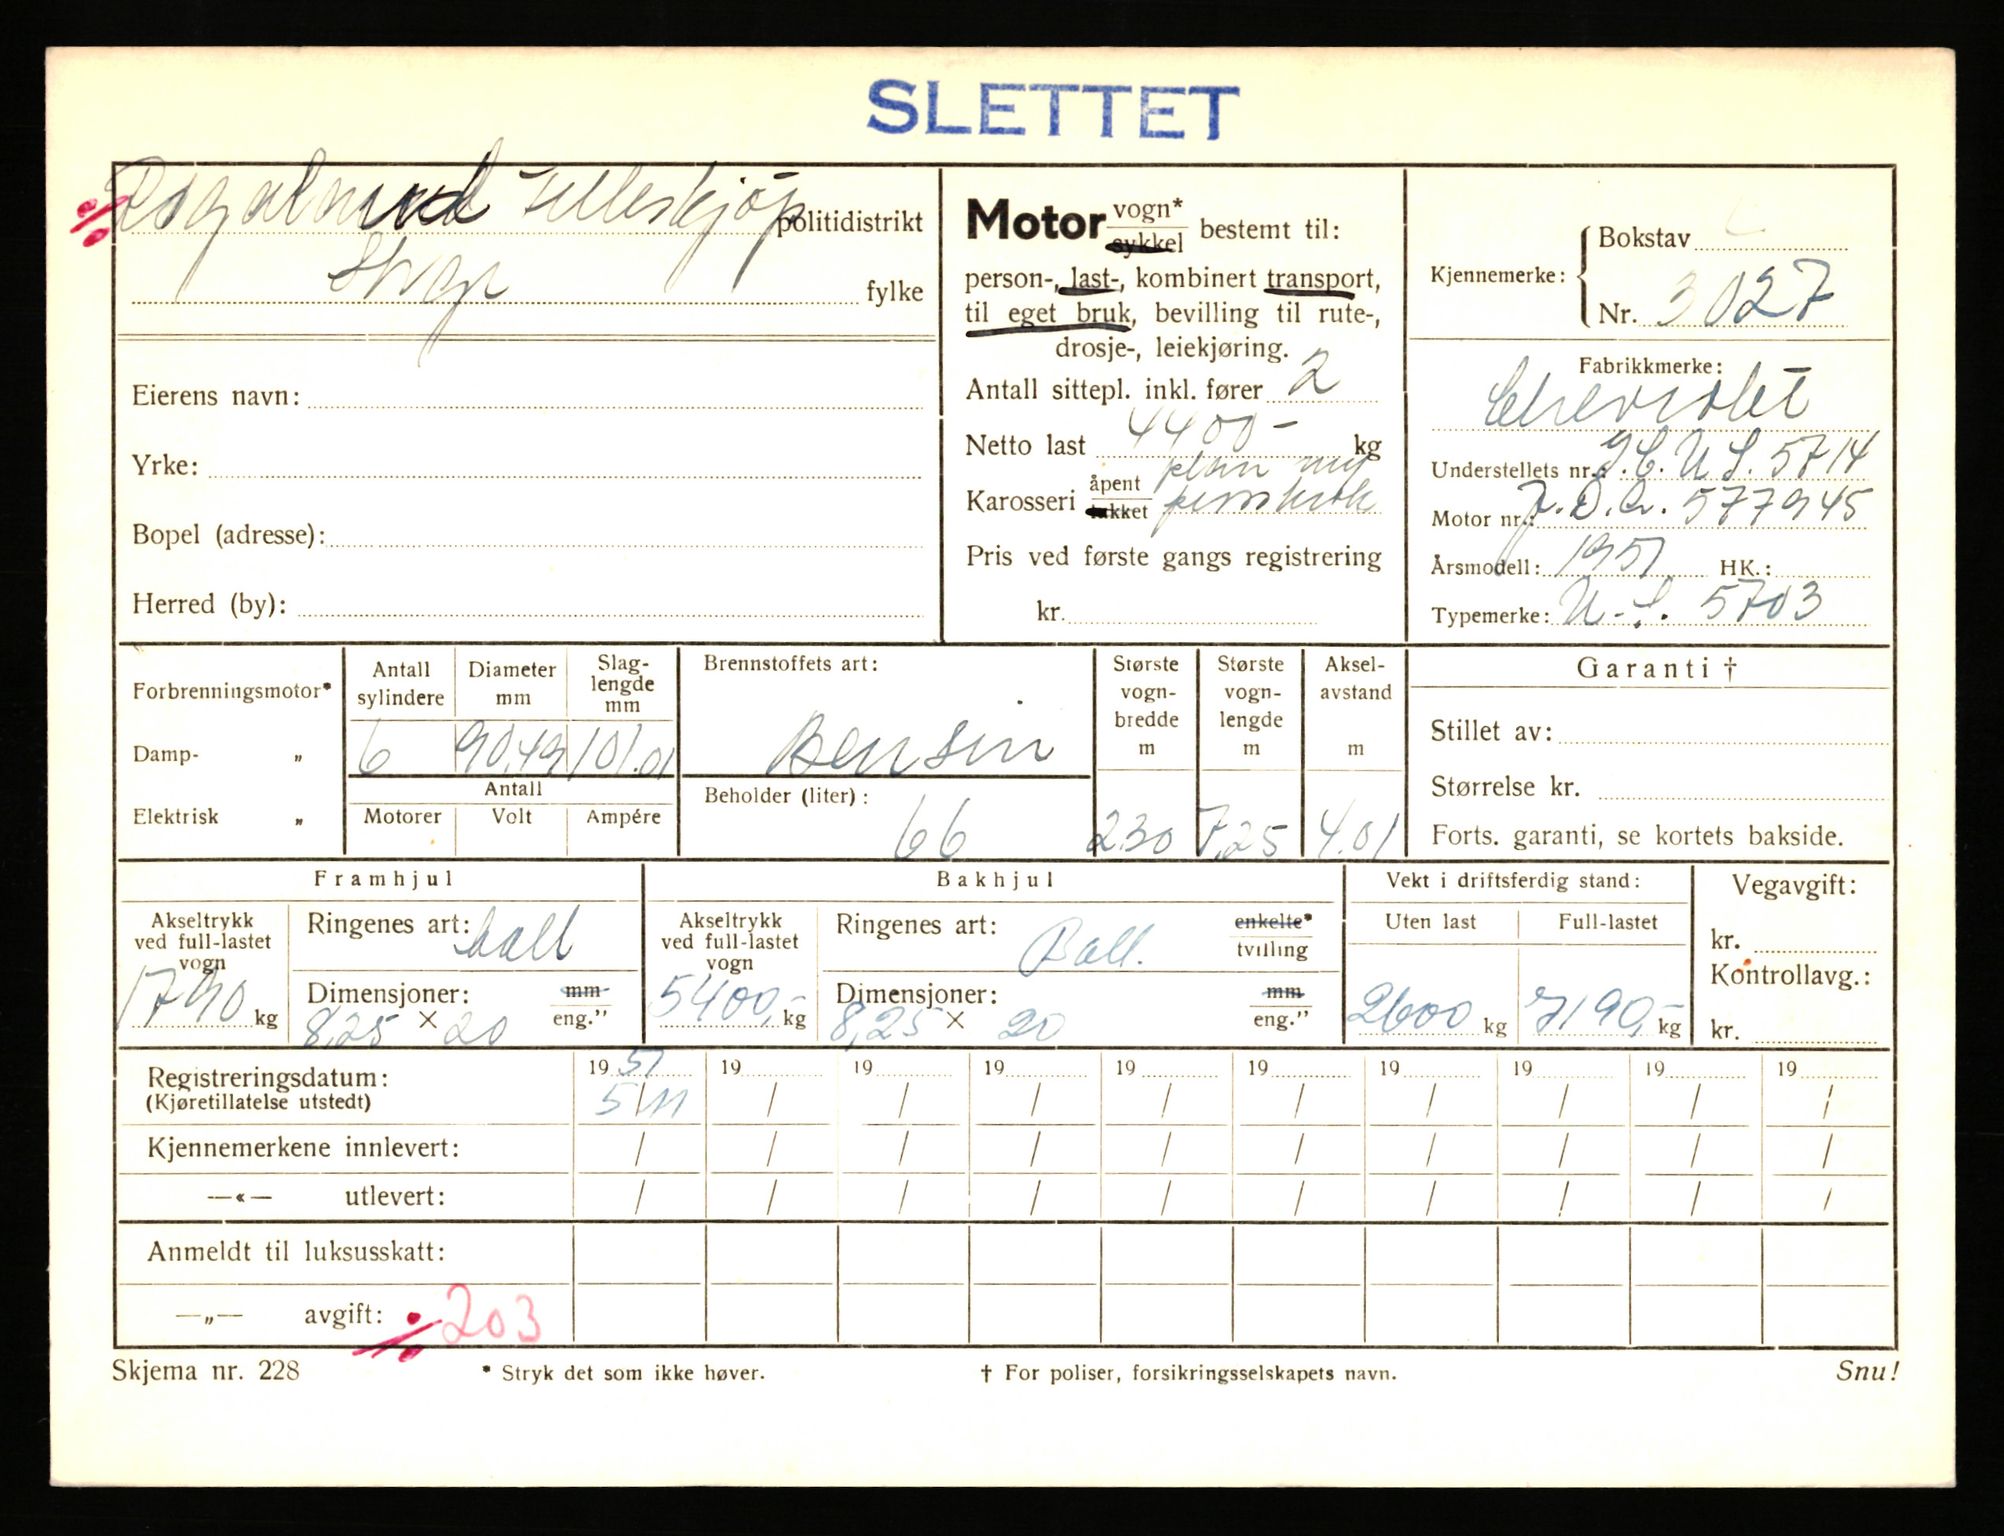 SLETTET
Rogaland Felleskjøp politidistrikt
Stvgr fylke
Eierens navn:
Yrke:
Bopel (adresse):
Herred (by):
Motor vogn* sykkel bestemt til:
person-, last-, kombinert transport,
til eget bruk, bevilling til rute-,
drosje-, leiekjøring.
Antall sittepl. inkl. fører 2
Netto last 4400- kg
Karosseri åpent lukket plan
Pris ved første gangs registrering
kr.
Kjennemerke: Bokstav L
Nr. 3027
Fabrikkmerke:
Chevrolet
Understellets nr.: J.C.U.S. 5714
Motor nr.: 577945
Årsmodell: 1951 HK.:
Typemerke: U-S. 5703
Forbrenningsmotor*
Damp- „
Elektrisk „
Antall sylindere 6
Diameter mm 90,49
Slag-lengde mm 101.01
Antall
Motorer Volt Ampére
Brennstoffets art:
Bensin
Beholder (liter): 66
Største vogn-bredde m 2.30
Største vogn-lengde m 7,25
Aksel-avstand m 4.01
Garanti †
Stillet av:
Størrelse kr.
Forts. garanti, se kortets bakside.
Framhjul
Akseltrykk ved full-lastet vogn 1790 kg
Ringenes art: ball
Dimensjoner: mm eng."
8,25 × 20
Bakhjul
Akseltrykk ved full-lastet vogn 5400,- kg
Ringenes art: Ball. enkelte* tvilling
Dimensjoner: mm eng."
8,25 × 20
Vekt i driftsferdig stand:
Uten last Full-lastet
2600 kg 7190,- kg
Vegavgift:
kr.
Kontrollavg.:
kr.
Registreringsdatum: 1951 19 19 19 19 19 19 19 19 19
(Kjøretillatelse utstedt) 5/11 / / / / / / / / /
Kjennemerkene innlevert: / / / / / / / / / /
—«— utlevert: / / / / / / / / / /
Anmeldt til luksusskatt:
—„— avgift: ÷ 203
Skjema nr. 228 * Stryk det som ikke høver. † For poliser, forsikringsselskapets navn. Snu!